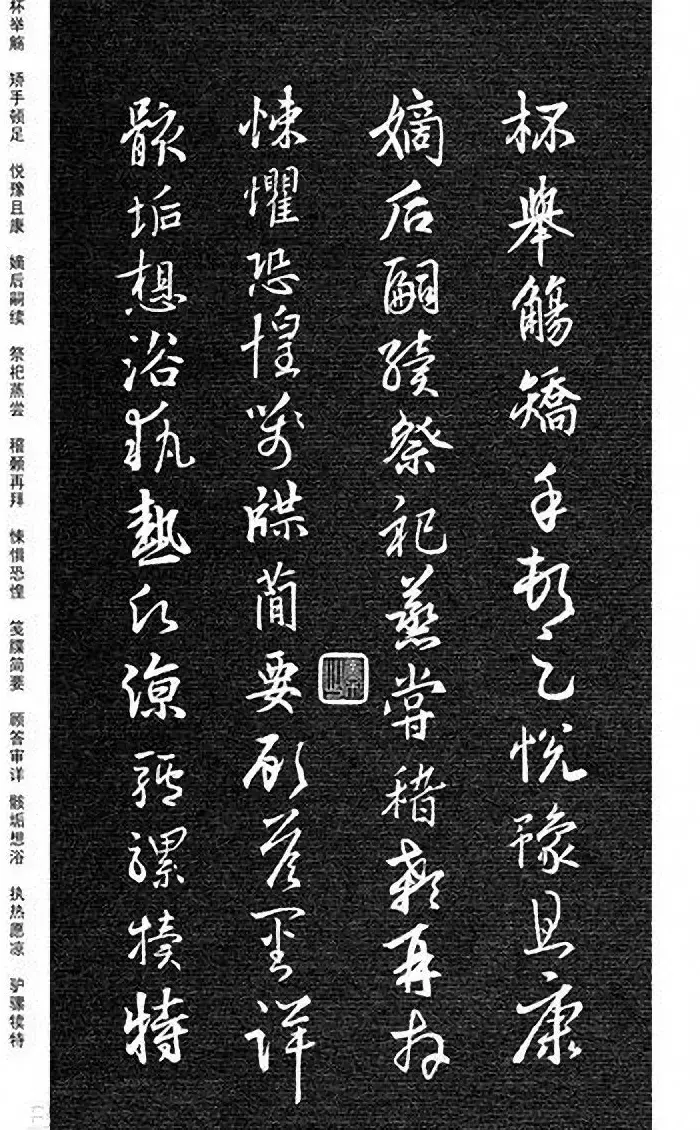 杯舉觴矯手頓足悅豫且康
嫡后嗣續祭祀蒸嘗稽顙再拜
悚懼恐惶箋牒簡要顧答審詳
骸垢想浴執熱願涼驢騾犢特
杯举觞 矫手顿足 悦豫且康 嫡后嗣续 祭祀蒸尝 稽颡再拜 悚惧恐惶 笺牒简要 顾答审详 骸垢想浴 执热愿凉 驴骡犊特